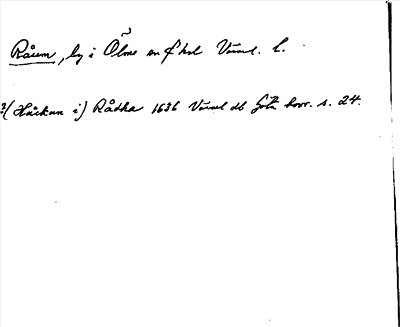 Råum, by i Ölme sn Ö hd Värml. l.
?(Håkan i) Rådha 1636 Värml db Göta hovr. s. 24.